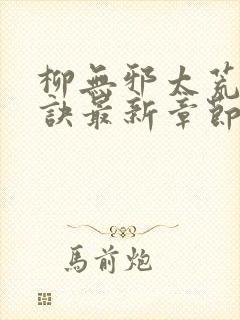 柳無邪太荒
訣最新章節
馬前炮